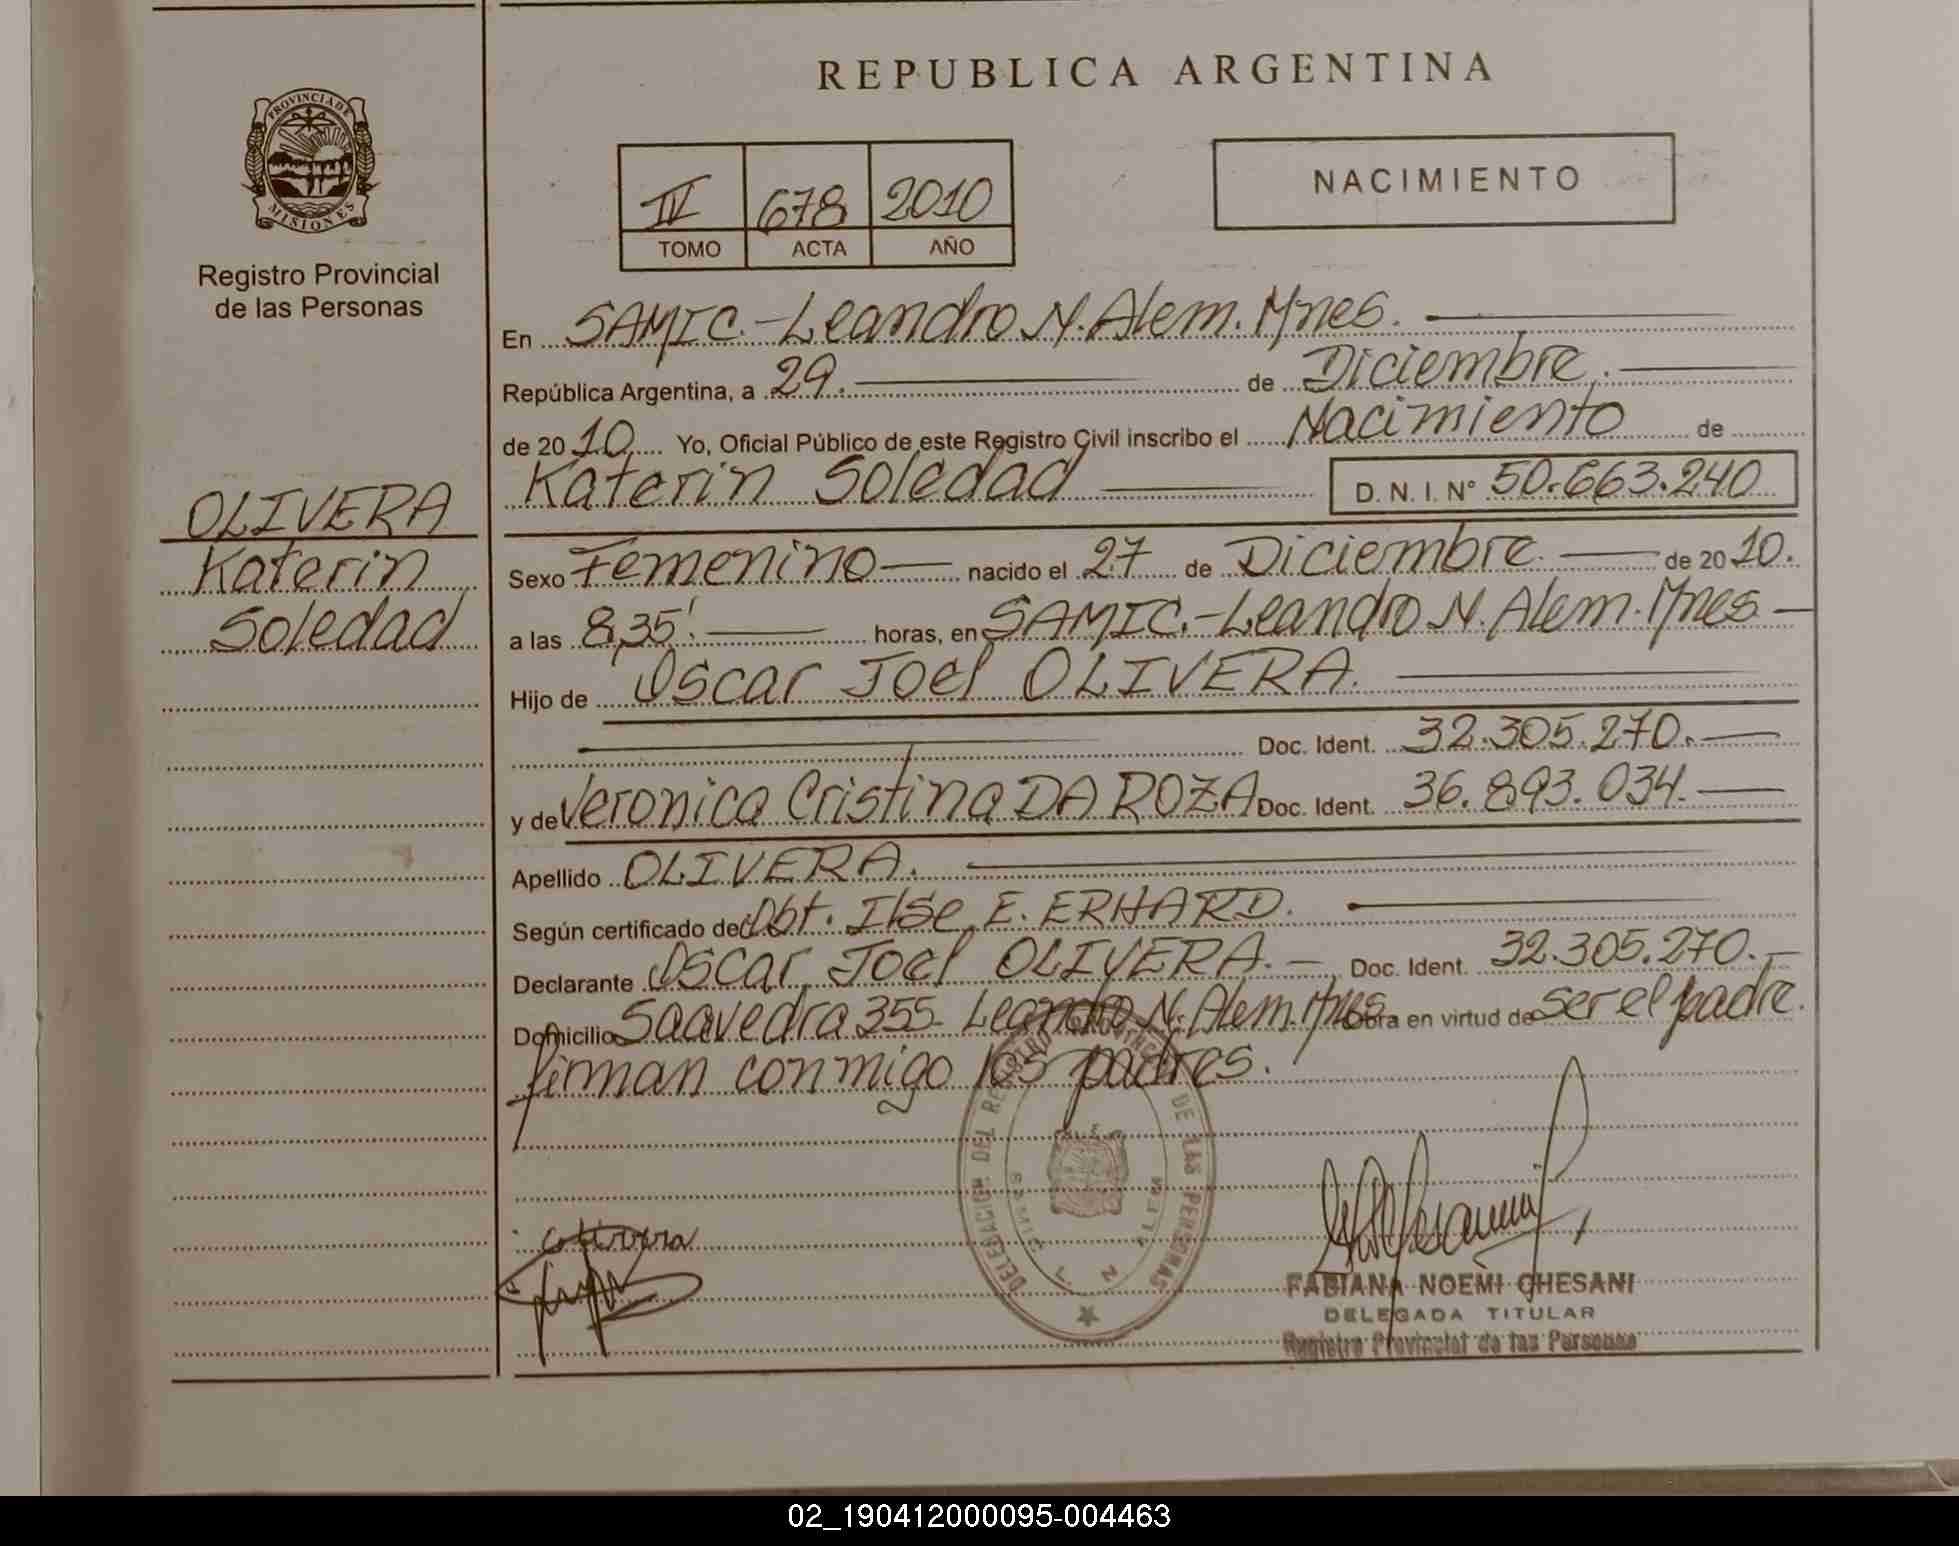 REPUBLICA ARGENTINA
PROVINCIA DE
MISIONES
Registro Provincial
de las Personas
IV 678 2010
TOMO ACTA AÑO
NACIMIENTO
En SAMIC.-Leandro N. Alem. Mnes.
República Argentina, a 29. de Diciembre.
de 2010 Yo, Oficial Público de este Registro Civil inscribo el Nacimiento de
Katerin Soledad D. N. I. N° 50.663.240
OLIVERA
Katerin
Soledad
Sexo Femenino nacido el 27 de Diciembre de 2010.
a las 8,35'. horas, en SAMIC.-Leandro N. Alem. Mnes
Hijo de Oscar Joel OLIVERA.
Doc. Ident. 32.305.270.
y de Veronica Cristina DA ROZA Doc. Ident. 36.893.034.
Apellido OLIVERA.
Según certificado de Obt. Ilse E. ERHARD.
Declarante Oscar Joel OLIVERA.- Doc. Ident. 32.305.270.-
Domicilio Saavedra 355 Leandro N. Alem. Mnes Obra en virtud de ser el padre.
firman conmigo los padres.
DELEGACION DEL REGISTRO PROVINCIAL DE LAS PERSONAS
SAMIC L. N. ALEM
Olivera
FABIANA NOEMI GHESANI
DELEGADA TITULAR
Registro Provincial de las Personas
02_190412000095-004463